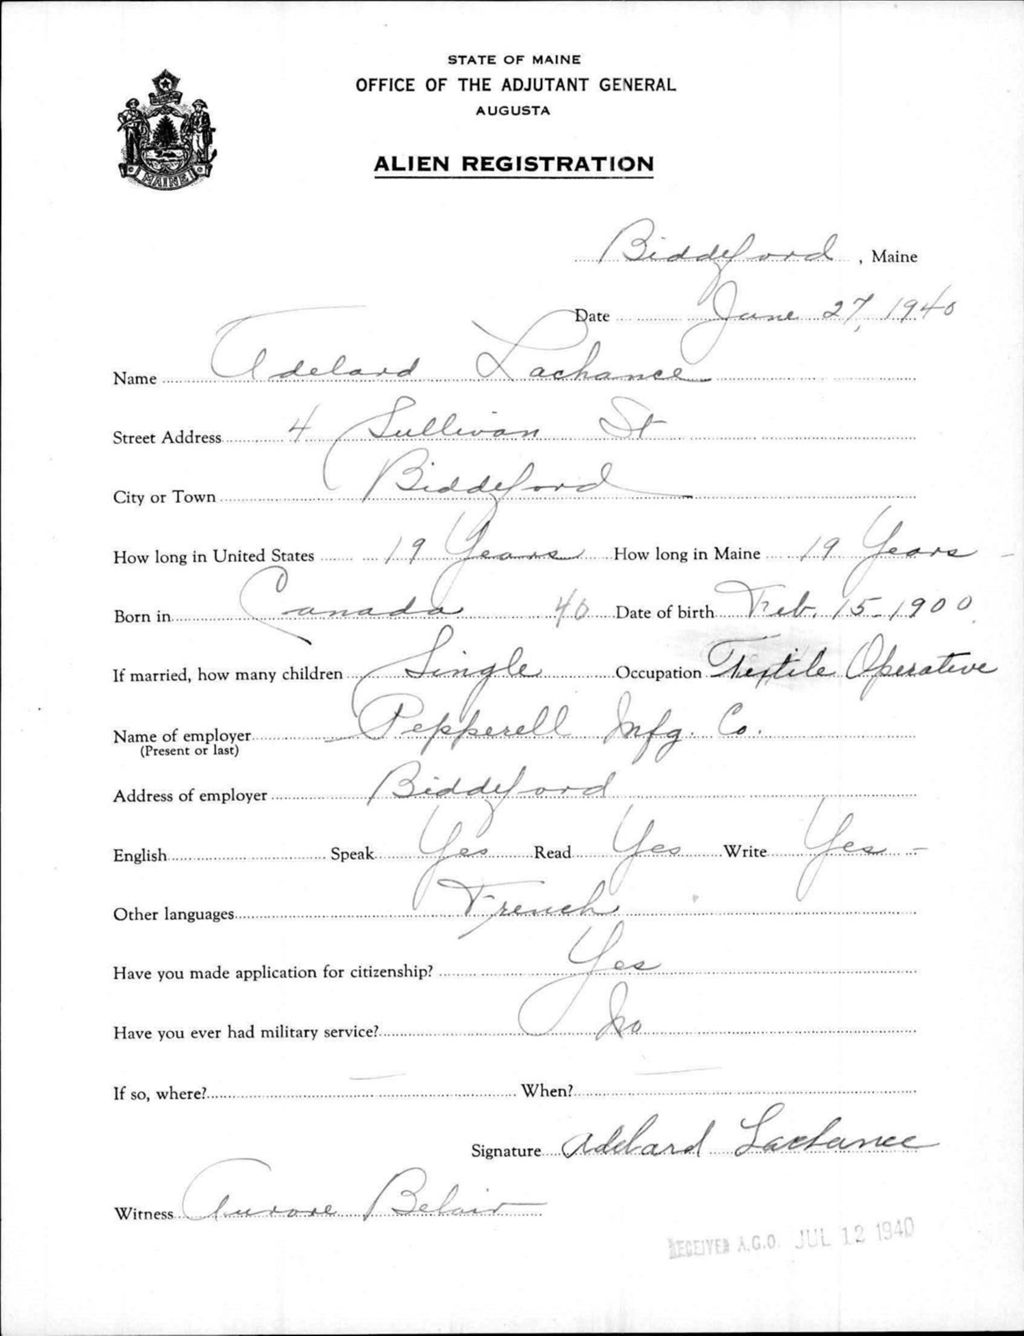 STATE OF MAINE
OFFICE OF THE ADJUTANT GENERAL
AUGUSTA
ALIEN REGISTRATION
MAINE
Biddeford, Maine
Date June 27, 1940
Name Adelard Lachance
Street Address 4 Sullivan St
City or Town Biddeford
How long in United States 19 Years How long in Maine 19 Years
Born in Canada 40 Date of birth Feb. 15-1900
If married, how many children Single Occupation Textile Operative
Name of employer Pepperell Mfg. Co.
(Present or last)
Address of employer Biddeford
English Speak Yes Read Yes Write Yes
Other languages French
Have you made application for citizenship? Yes
Have you ever had military service? No
If so, where? — When? —
Signature Adelard Lachance
Witness Aurore Belair
RECEIVED A.G.O. JUL 12 1940